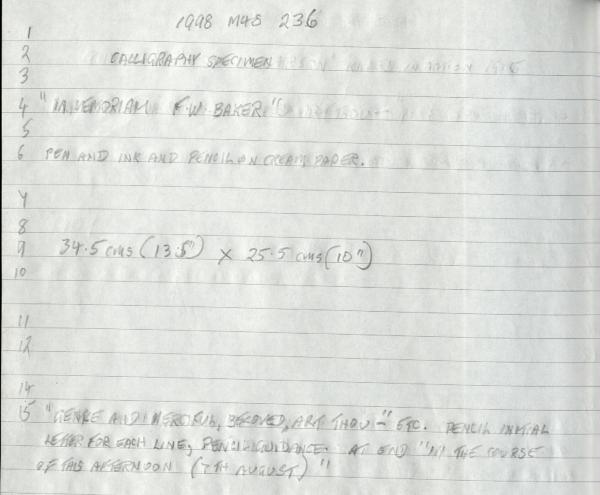 1998 M&S 236
1
2 CALLIGRAPHY SPECIMEN
3
4 "IN MEMORIAM F.W. BAKER."
5
6 PEN AND INK AND PENCIL ON CREAM PAPER.
7
8
9 34.5 cms (13.5") x 25.5 cms (10")
10
11
12
14
15 "GENTLE AND MERCIFUL, BELOVED, ART THOU –" ETC. PENCIL INITIAL
LETTER FOR EACH LINE, PENCIL GUIDANCE. AT END "IN THE COURSE
OF THIS AFTERNOON (7TH AUGUST)"